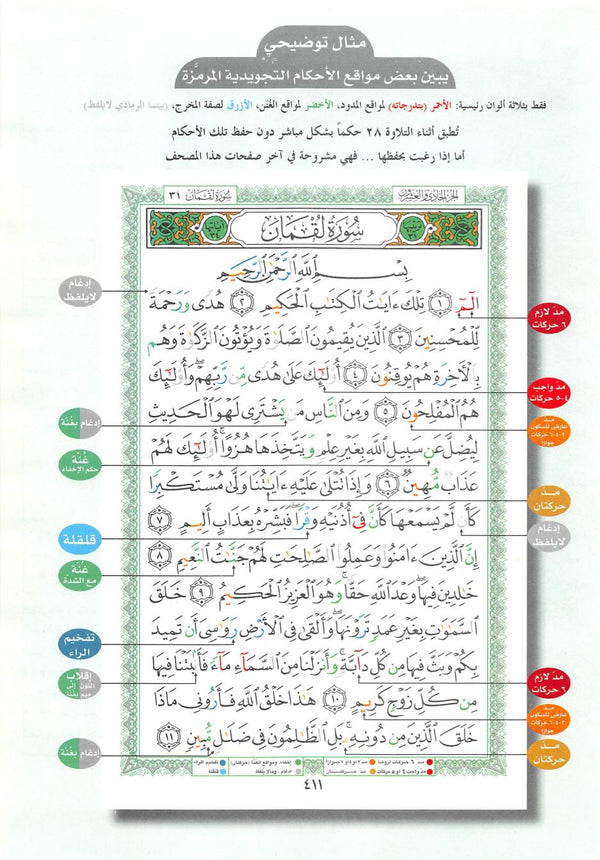 مثال توضيحي
يبين بعض مواقع الأحكام التجويدية المرمزَّة
فقط بثلاثة ألوان رئيسية: الأحمر (بتدرجاته) لمواقع المدود، الأخضر لمواقع الغُنَن، الأزرق لصفة المخرج، (بينما الرمادي لايلفظ)
تُطبق أثناء التلاوة ٢٨ حكماً بشكل مباشر دون حفظ تلك الأحكام
أما إذا رغبت بحفظها ... فهي مشروحة في آخر صفحات هذا المصحف
الجزء الحادي والعشرون
سورة لقمان ٣١
سُورَةُ لُقْمَان
بِسْمِ اللَّهِ الرَّحْمَٰنِ الرَّحِيمِ
الٓمٓ ١ تِلْكَ ءَايَٰتُ الْكِتَٰبِ الْحَكِيمِ ٢ هُدًى وَرَحْمَةً
لِّلْمُحْسِنِينَ ٣ الَّذِينَ يُقِيمُونَ الصَّلَوٰةَ وَيُؤْتُونَ الزَّكَوٰةَ وَهُم
بِالْأَخِرَةِ هُمْ يُوقِنُونَ ٤ أُولَٰٓئِكَ عَلَىٰ هُدًى مِّن رَّبِّهِمْ وَأُولَٰٓئِكَ
هُمُ الْمُفْلِحُونَ ٥ وَمِنَ النَّاسِ مَن يَشْتَرِى لَهْوَ الْحَدِيثِ
لِيُضِلَّ عَن سَبِيلِ اللَّهِ بِغَيْرِ عِلْمٍ وَيَتَّخِذَهَا هُزُوًا أُولَٰٓئِكَ لَهُمْ
عَذَابٌ مُّهِينٌ ٦ وَإِذَا تُتْلَىٰ عَلَيْهِ ءَايَٰتُنَا وَلَّىٰ مُسْتَكْبِرًا
كَأَن لَّمْ يَسْمَعْهَا كَأَنَّ فِىٓ أُذُنَيْهِ وَقْرًا فَبَشِّرْهُ بِعَذَابٍ أَلِيمٍ ٧
إِنَّ الَّذِينَ ءَامَنُوا وَعَمِلُوا الصَّٰلِحَٰتِ لَهُمْ جَنَّٰتُ النَّعِيمِ ٨
خَٰلِدِينَ فِيهَا وَعْدَ اللَّهِ حَقًّا وَهُوَ الْعَزِيزُ الْحَكِيمُ ٩ خَلَقَ
السَّمَٰوَٰتِ بِغَيْرِ عَمَدٍ تَرَوْنَهَا وَأَلْقَىٰ فِى الْأَرْضِ رَوَٰسِىَ أَن تَمِيدَ
بِكُمْ وَبَثَّ فِيهَا مِن كُلِّ دَآبَّةٍ وَأَنزَلْنَا مِنَ السَّمَآءِ مَآءً فَأَنۢبَتْنَا فِيهَا
مِن كُلِّ زَوْجٍ كَرِيمٍ ١٠ هَٰذَا خَلْقُ اللَّهِ فَأَرُونِى مَاذَا
خَلَقَ الَّذِينَ مِن دُونِهِ بَلِ الظَّٰلِمُونَ فِى ضَلَٰلٍ مُّبِينٍ ١١
مدّ ٦ حركات لزوماً
مدّ ٢ او ٤ او ٦ جوازاً
إخفاء، ومواقع الغُنَّة (حركتان)
تفخيم الراء
مدّ واجب ٤ او ٥ حركات
مدّ حركتان
إدغام، ومالا يُلفَظ
قلقلة
٤١١
مدّ لازم
٦ حركات
مدّ واجب
٤-٥ حركات
مدّ
عارض للسكون
٢-٤-٦ حركات
جوازاً
مدّ
حركتان
إدغام
لايلفظ
مدّ لازم
٦ حركات
مدّ
عارض للسكون
٢-٤-٦ حركات
جوازاً
مدّ
حركتان
إدغام
لايلفظ
إدغام بغُنَّة
غُنَّة
حكم الإخفاء
قلقلة
غُنَّة
مع الشدّة
تفخيم
الراء
إقلاب
النون إلى
ميم بغُنَّة
إدغام بغُنَّة